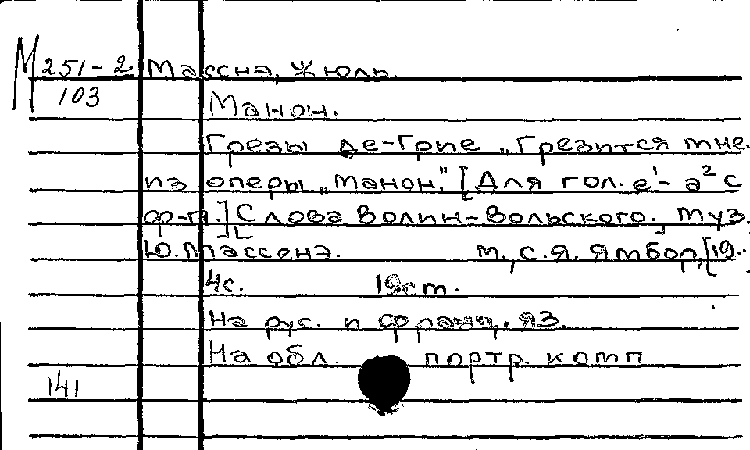 М 251-2 Массне, Жюль.
103 Манон.
Грезы де-Грие „Грезится мне.
из оперы „Манон." [Для гол. e¹- a² с
ф-п.] [Слова Волин-Вольского. Муз.
Ю. Массенэ. М., С.Я. Ямбор, [19..
4с. 19cm.
На рус. и франц. яз.
На обл портр. комп
141